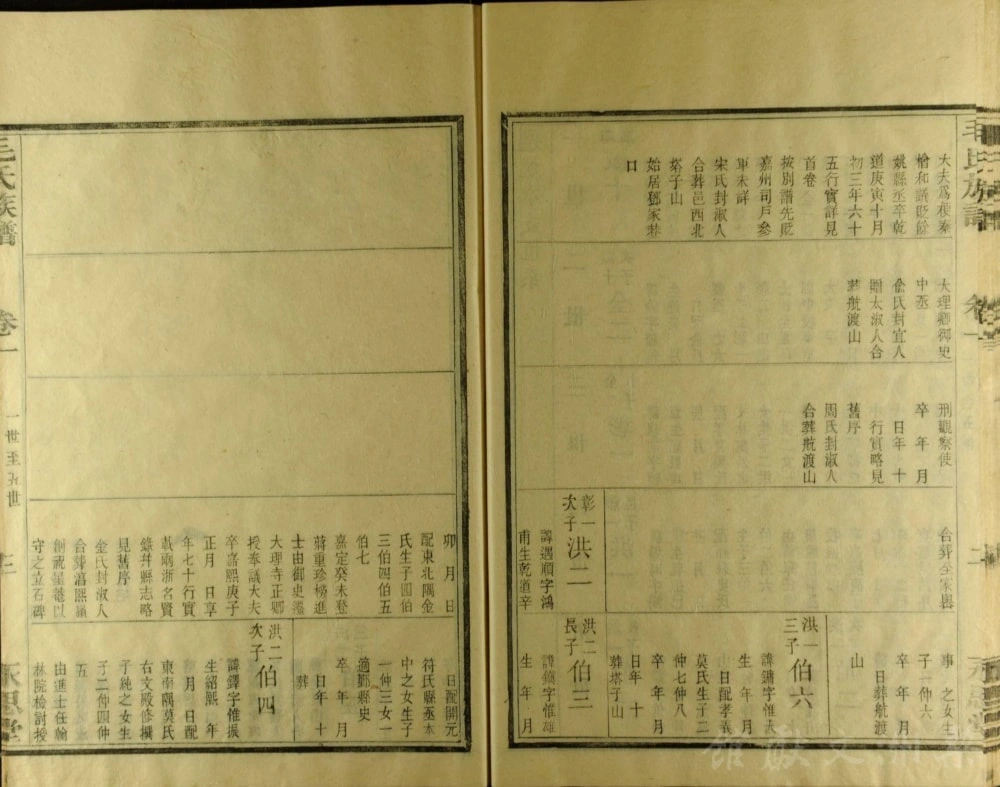 大夫爲積秦
檜和議貶餘
姚縣丞卒乾
道庚寅十月
初三年六十
五行實詳見
首卷
按別譜先貶
嘉州司戶參
軍未詳
宋氏封淑人
合葬邑西北
塔子山
始居鄧家
口
大理卿御史
中丞
俞氏封宜人
贈太淑人合
葬航渡山
刑觀察使
卒 年 月
日年 十
行實略見
舊序
周氏封淑人
合葬航渡山
合葬
彰一
次子
洪二
諱遇順字鴻
甫生乾道辛
事 之女生
子一仲六
卒 年 月
日葬航渡
山
洪一
三子
伯六
諱鏞字惟大
生 年 月
日配孝義
莫氏生子二
仲七仲八
卒 年 月
日年 十
葬塔子山
洪二
長子
伯三
諱鎮字惟雄
生 年 月
毛氏族譜 卷一 二
卯 月 日
配東北隅金
氏生子四伯
三伯四伯五
伯七
嘉定癸未登
蔣重珍榜進
士由御史
大理寺正卿
授奉議大夫
卒嘉熙庚子
正月 日享
年七十行實
載兩浙名賢
錄幷縣志略
見舊序
金氏封淑人
合葬
創祇星菴以
守之立石碑
日配開元
符氏縣丞本
中之女生子
一仲三女一
適鄞縣史
卒 年 月
日年 十
葬
洪二
次子
伯四
諱鐸字惟振
生紹熙 年
月 日配
東南隅莫氏
右文殿修撰
子純之女生
子二仲四仲
五
由進士任翰
林院檢討授
毛氏族譜 卷一 一世至九世 三 永思堂